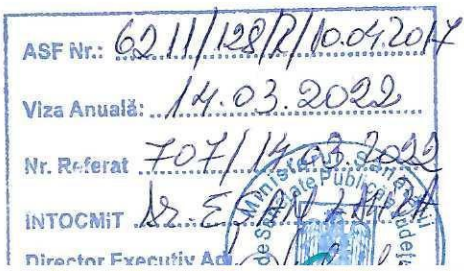 ASF Nr.: 6211/128/R/10.04.2017
Viza Anuală: 14.03.2022
Nr. Referat 707/14.03.2022
INTOCMIT Dr. E
Director Executiv Ad
Ministerul Sănătății
de Sănătate Publică